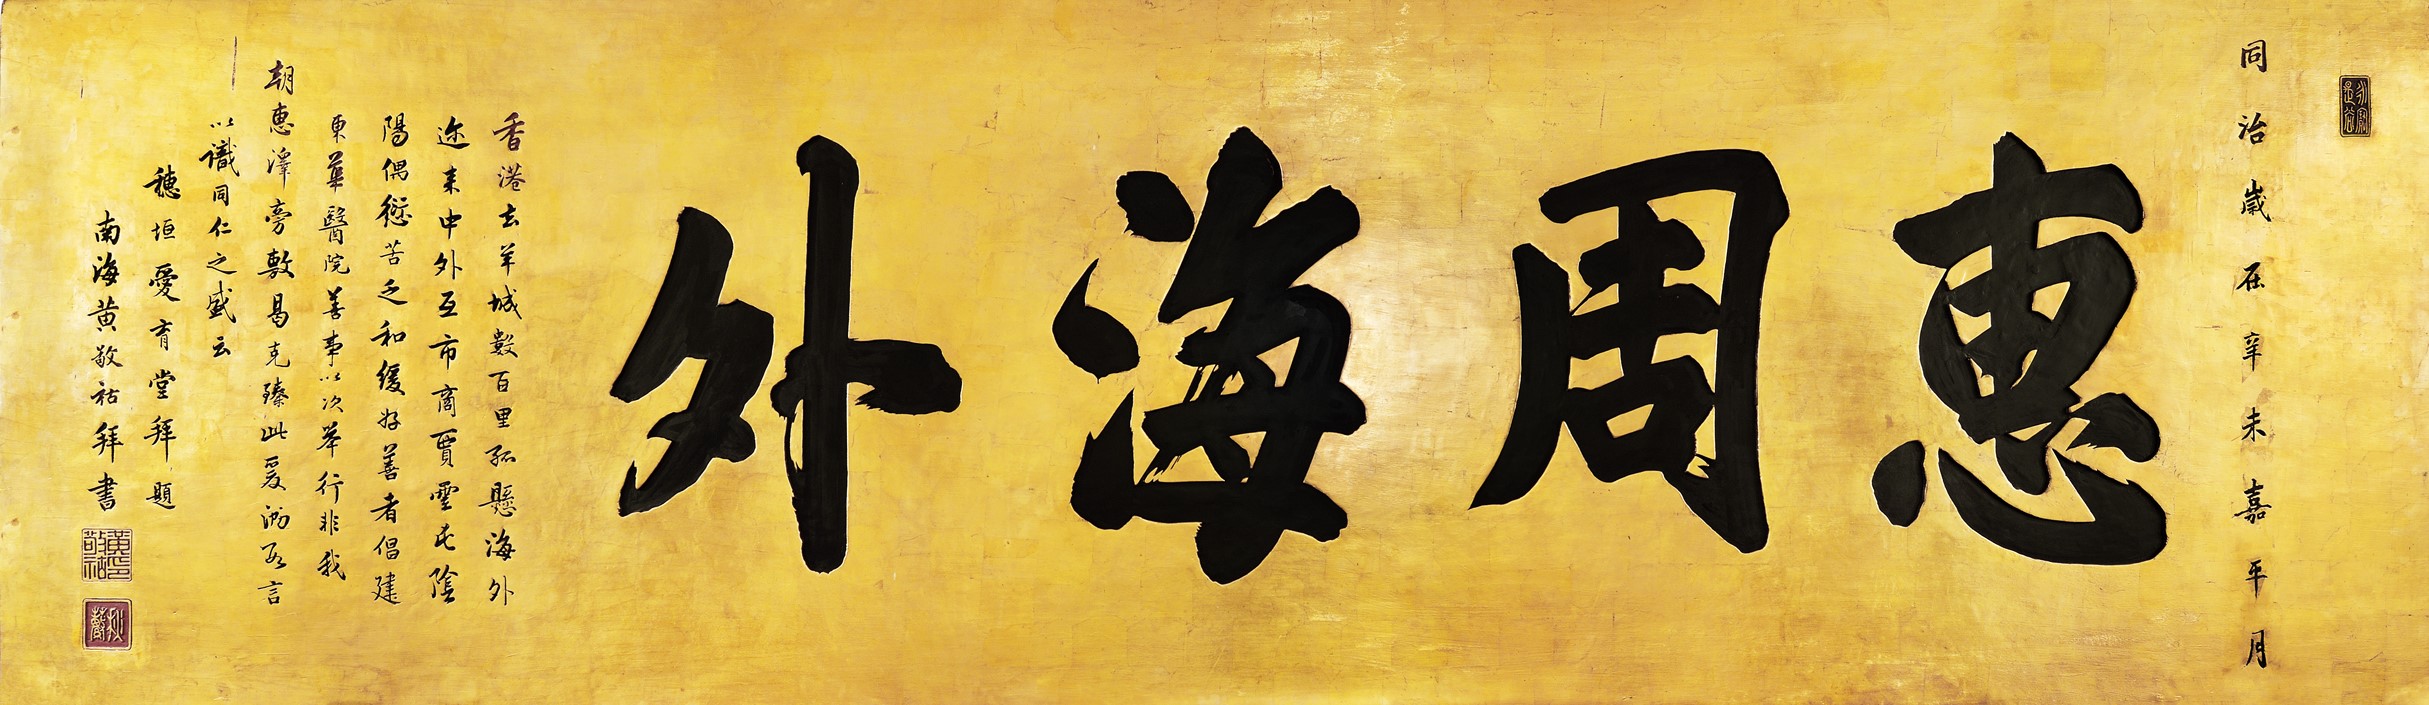 同治歲在辛未嘉平月
惠周海外
香港去羊城數百里孤懸海外
迩来中外互市商賈雲屯陰
陽偶愆苦乏和緩好善者倡建
東華醫院善事以次舉行非我
朝惠澤旁敷曷克臻此爰泐数言
以識同仁之盛云
穗垣愛育堂拜題
南海黄敬祜拜書
黃敬祜印